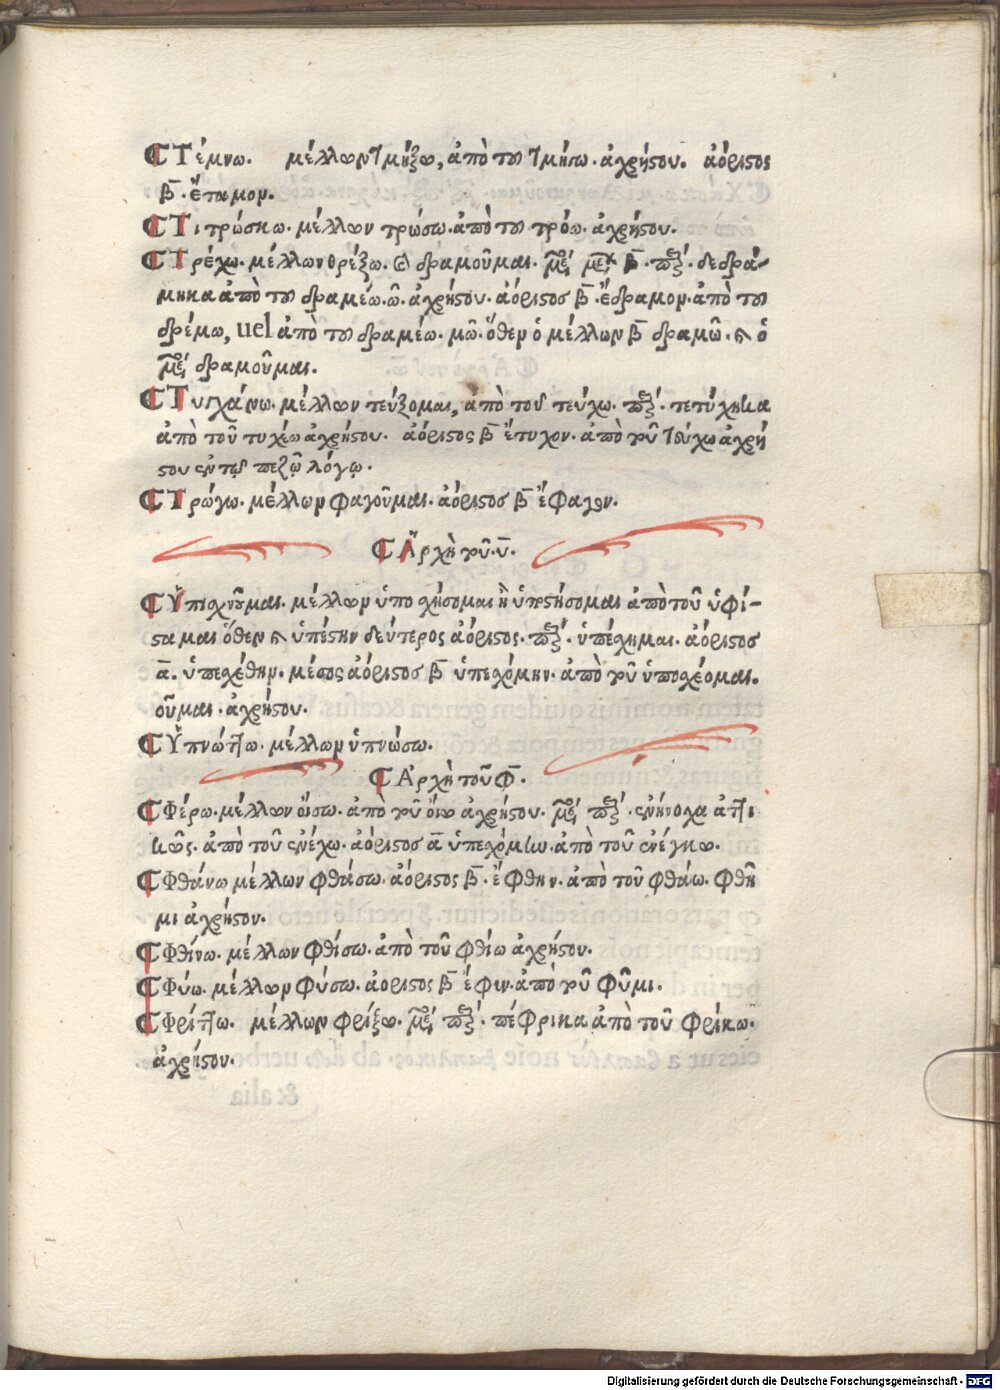 Τέμνω. μέλλων τμήξω, ἀπὸ τοῦ τμήσω. ἀχρήστου. ἀόριστος
β̄. ἔταμον.
Τιτρώσκω. μέλλων τρώσω. ἀπὸ τοῦ τρόω. ἀχρήστου.
Τρέχω. μέλλων θρέξω. δραμοῦμαι. β̄. δεδρά-
μηκα ἀπὸ τοῦ δραμέω. ῶ. ἀχρήστου. ἀόριστος β̄. ἔδραμον. ἀπὸ τοῦ
δρέμω, uel ἀπὸ τοῦ δραμέω. μῶ. ὅθεν ὁ μέλλων β̄ δραμῶ. ὁ
δραμοῦμαι.
Τυγχάνω. μέλλων τεύξομαι, ἀπὸ τοῦ τεύχω. τετύχηκα
ἀπὸ τοῦ τυχέω ἀχρήστου. ἀόριστος β̄ ἔτυχον. ἀπὸ τοῦ τύχω ἀχρή
στου ἐν τῷ πεζῷ λόγῳ.
Τρώγω. μέλλων φαγοῦμαι. ἀόριστος β̄ ἔφαγον.
Ἀρχὴ τοῦ. ῡ.
Ὑπισχνοῦμαι. μέλλων ὑποσχήσομαι ἢ ὑποστήσομαι ἀπὸ τοῦ ὑφί-
σταμαι ὅθεν ὑπέστην δεύτερος ἀόριστος. ὑπέσχημαι. ἀόριστος
ᾱ. ὑπεσχέθην. μέσος ἀόριστος β̄ ὑπεσχόμην. ἀπὸ τοῦ ὑποσχέομαι.
οῦμαι. ἀχρήστου.
Ὑπνώττω. μέλλων ὑπνώσω.
Ἀρχὴ τοῦ φ̄.
Φέρω. μέλλων οἴσω. ἀπὸ τοῦ οἴω ἀχρήστου. ἐνήνοχα ἀττι
κῶς. ἀπὸ τοῦ ἐνέχω. ἀόριστος ᾱ ὑπεσχόμην. ἀπὸ τοῦ ἐνέγκω.
Φθάνω μέλλων φθάσω. ἀόριστος β̄. ἔφθην. ἀπὸ τοῦ φθάω. φθῆ
μι ἀχρήστου.
Φθίνω. μέλλων φθίσω. ἀπὸ τοῦ φθίω ἀχρήστου.
Φύω. μέλλων φύσω. ἀόριστος β̄ ἔφυν. ἀπὸ τοῦ φῦμι.
Φρίττω. μέλλων φρίξω. πέφρικα ἀπὸ τοῦ φρίκω.
ἀχρήστου.
Digitalisierung gefördert durch die Deutsche Forschungsgemeinschaft - DFG